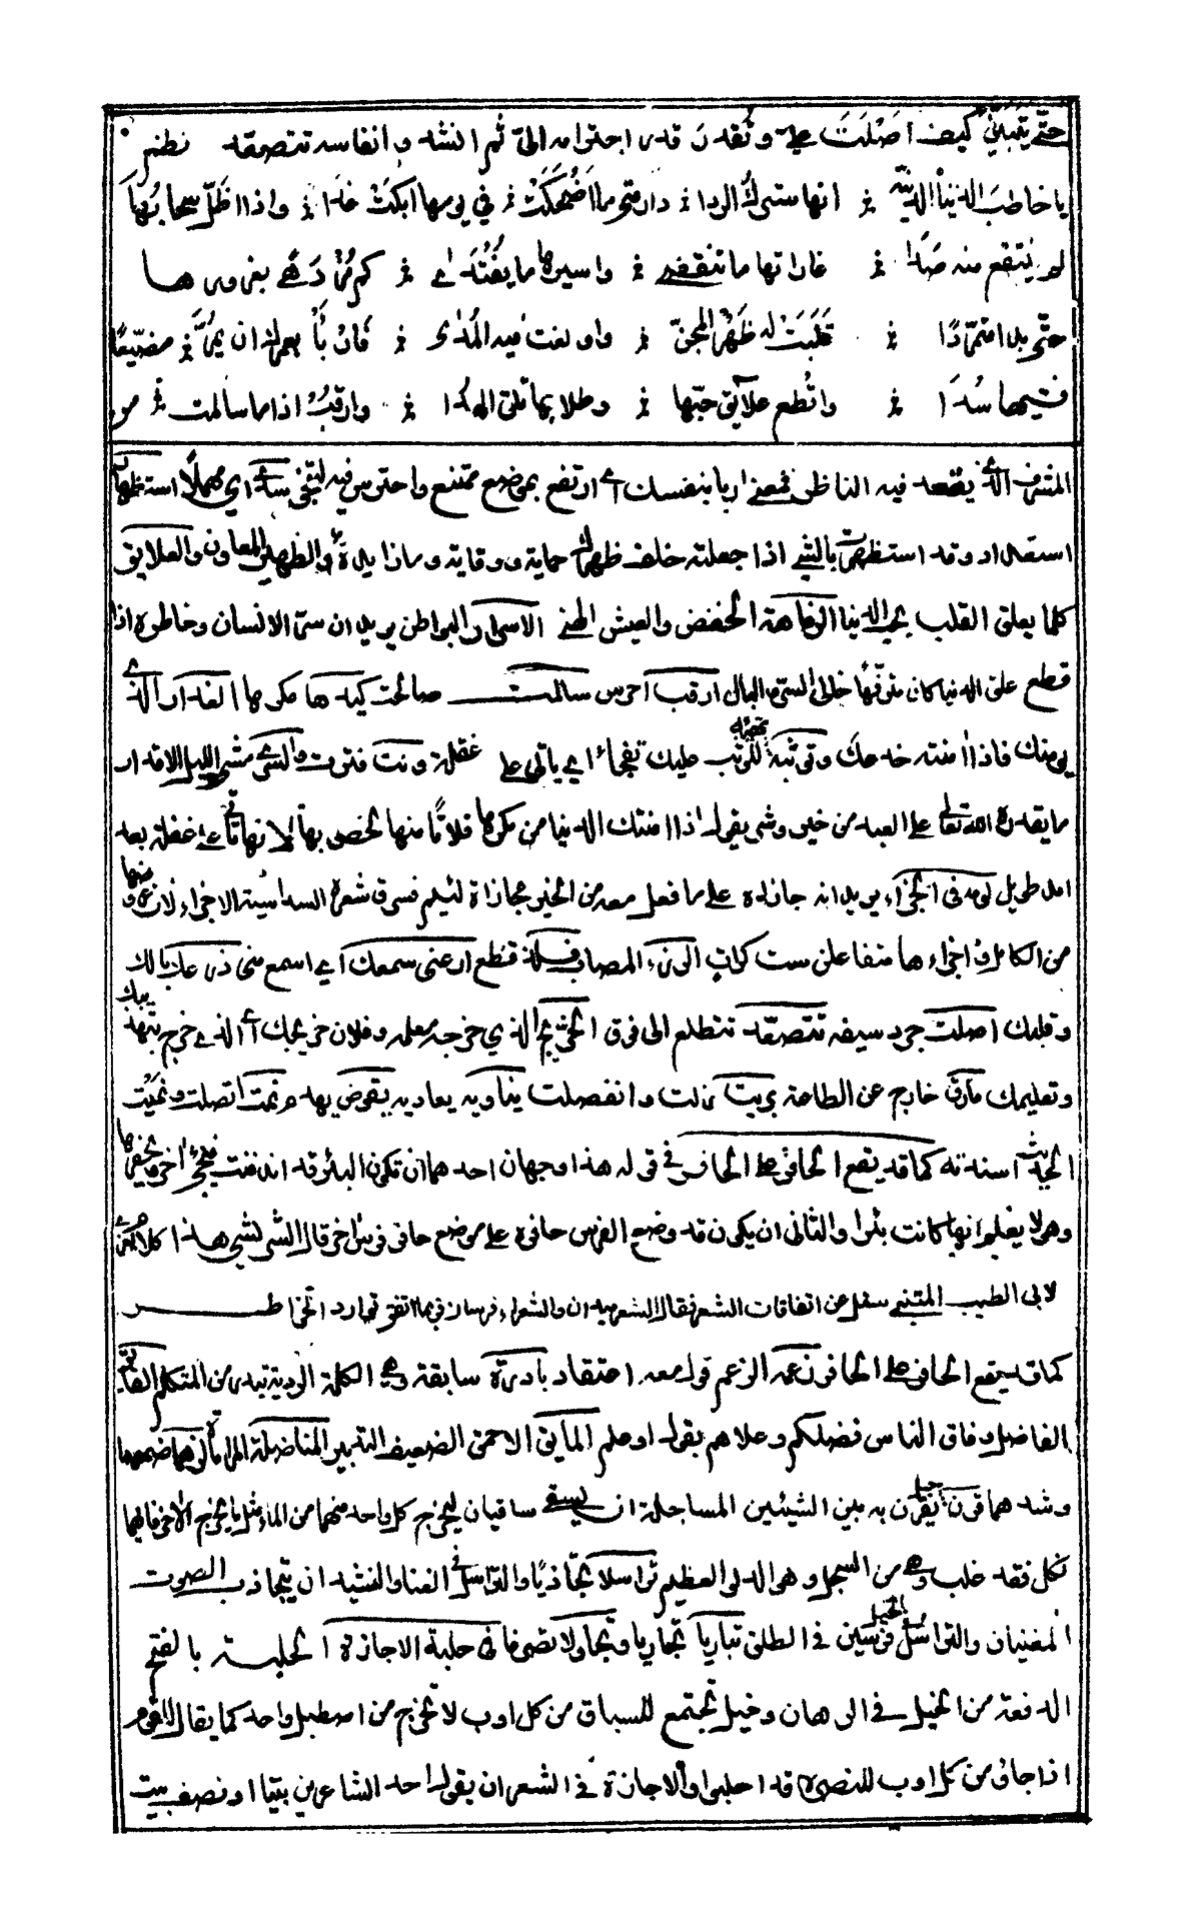 حتّى يتبيّن كيف اَصْلَتَ علىّ وتُعَدّ قدر اجترامه الىّ ثم انشد وانفاسه تتصعّد نظم
يا خاطبَ الدنياْ الدنيّة ؛ انها شرك الردا ؛ دار متى ما اَضْحَكَتْ ؛ في يومها ابكَتْ غدا ؛ واذا اظَلّ سحابُها
لم يَنتقع منه صَدَا ؛ غاراتها ما تنقضى ؛ واسيرها ما يُفْتَدى ؛ كم مُزْدَهًى بغرورها
حتّى بدا متمّردًا ؛ قَلَبَتْ له ظَهْرَ المجنّ ؛ واولغت فيه المُدى ؛ فارْبَأْ بعمرك ان يمُرّ ؛ مضيّعًا
فيها سُدَا ؛ واقْطع علائق حبّها ؛ وطلابها تلق الهدا ؛ وارقُبْ اذا ما سالمت ؛ من
المشرف الذي يقعد فيه الناظر فمعنى اربا بنفسك اي ارتفع بموضع ممتنع واحترس فيه ليتّقى سدى اي مهملًا استظهارا
استعدادا وقد استظهرت بالشيء اذا جعلته خلف ظهرك حماية ووقاية والظهير المعاون والعلايق
كلما يعلق القلب بحب الدنيا الرفاهة الخفض والعيش الهنى الاسرار البواطن يريد ان سرّ الانسان وخاطره اذا
قطع علق الدنيا كان مترفّهًا خالى السرّ والبال ارقب احرس سالمت صالحت كيدها مكرها الغدار الذى
يومنك فاذا امنته خدعك وثبة للوثب عليك تفجأ اي ياتى على غفلة ونت فترت والسرى مشى الليل الاقدار
ما يقدره الله تعالى على العبد من خير وشر يقول اذا امنتك الدنيا من مكرها فلا تامنها لخصر بها لانها تاتى على غفلة بعد
امد طويل لومه فى الجزاء يريد انه جازاه على ما فعل معه من الخير مجازاة لئيم فسرق شعره السداسية الاجزاء لان عروضها
من الكامل واجزاءها متفاعلن ست كرات الرزء المصاب فلذ قطع ارعنى سمعك اي اسمع منى ذرعك بالك
وقلبك اصلت جرد سيفه تتصعّد تتطلع الى فوق الخريج الذي خرجه معلمه وفلان خريجك اي الذى خرج بتهذيبك
وتعليمك مارق خارج عن الطاعة بريت زلت وانفصلت يناويه يعاديه يقوض يهدم نمت اتصلت ونميت
الحديث اسندته كما قد يقع الحافر على الحافر في قوله هذا وجهان احدهما ان تكون البئر قد اندفنت فيجئ اخر يحفرها
وهو لا يعلم انها كانت بئرا والثانى ان يكون قد وضع الفرس حافره على موضع حافر فرس اخر قال الشريشى هذا كلام
لابى الطيب المتنبى سئل عن اتفاقات الشعر فقال الشعر ميدان والشعراء فرسان فربما اتفق توارد الخواطر
كما قد يقع الحافر على الحافر زعمه الزعم قول معه اعتقاد بادرة سابقة وهى الكلمة الردية تبدر من المتكلم الفايق
الفاضل وفاق الناس فضلهم وعلاهم بقوله او علم المايق الاحمق الضعيف التدبير المناضلة المراماة لزهما ضمهما
وشدهما قرن حبل يقرن به بين الشيئين المساجلة ان يستقى ساقيان ليخرج كل واحد منهما من الماء مثل ما يخرج الاخر فايهما
نكل فقد غلب وهى من السجل وهو الدلو العظيم تراسلا تجاذبا والتراسل فى الغناء والنشيد ان يتجاذب الصوت
المغنيان والتراسل فى الخيل ارسال فرسين فى الطلق تباريا تجاريا وتجاولا تصرفا فى حلبة الاجازة الحلبة بالفتح
الدفعة من الخيل فى الرهان وخيل تجتمع للسباق من كل اوب لا تخرج من اصطبل واحد كما يقال للقوم
اذا جاؤ من كل اوب للنصرة قد احلبوا والاجازة فى الشعر ان يقول احد الشاعرين بيتا او نصف بيت